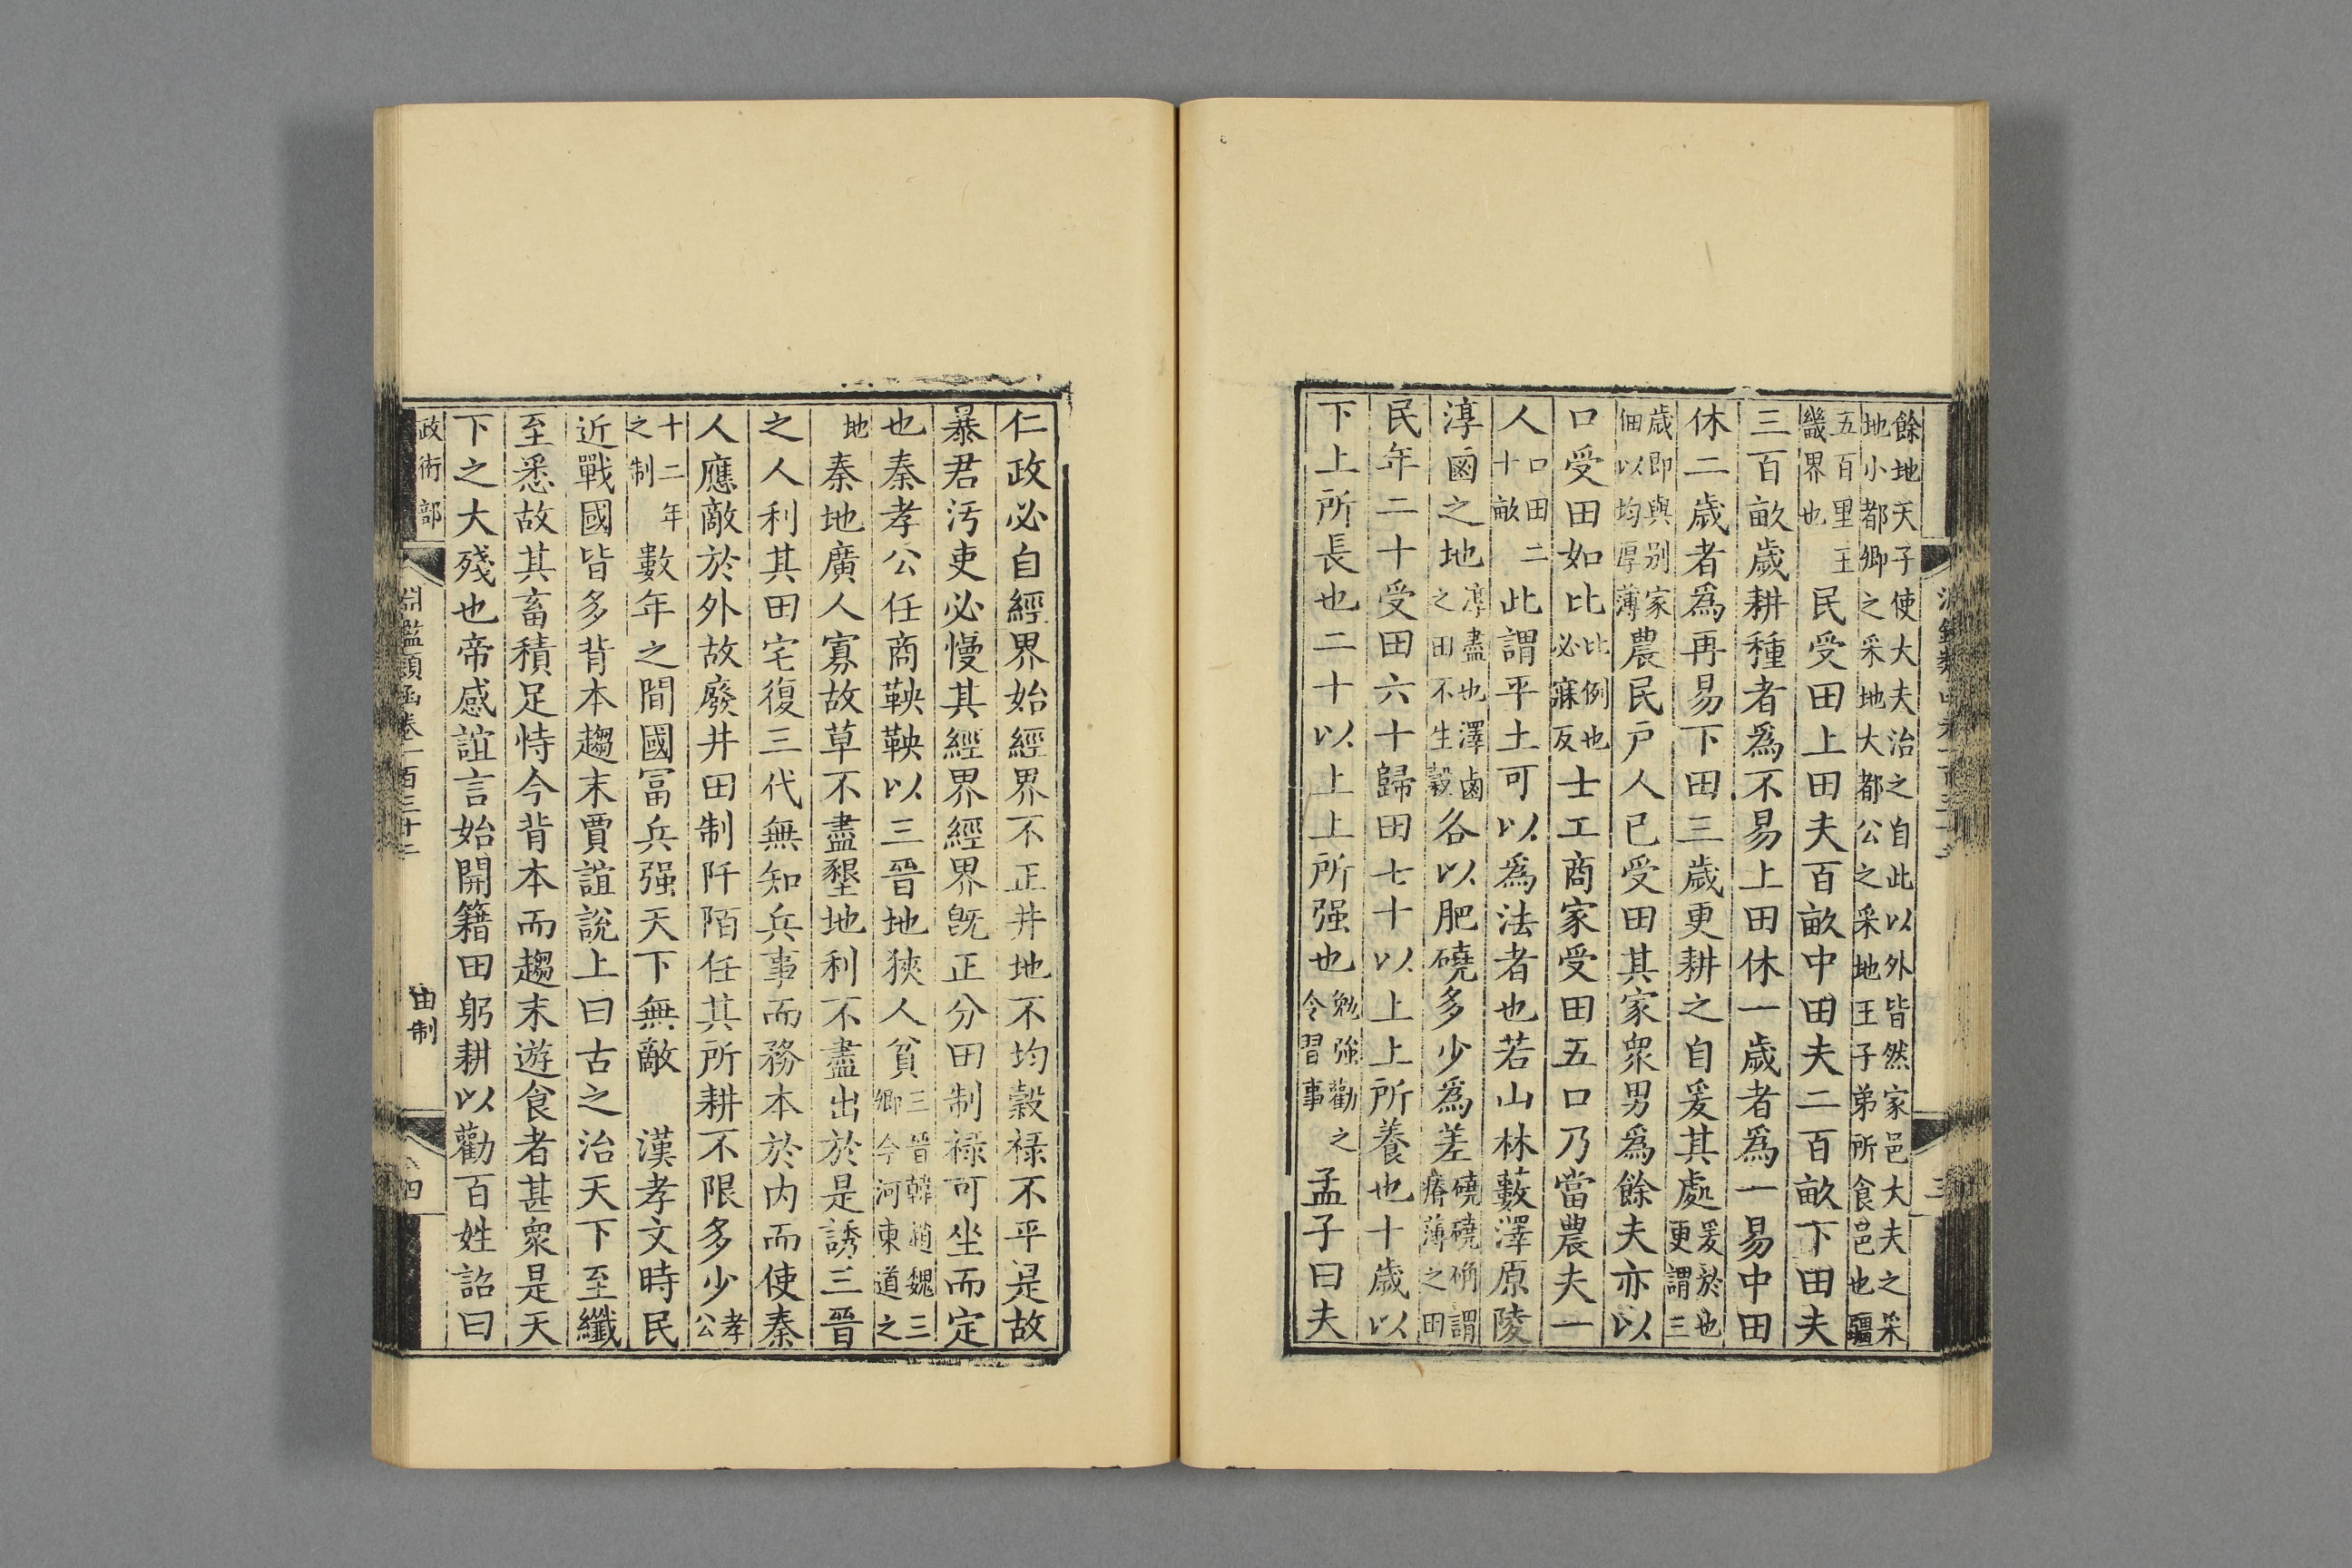 餘地天子使大夫治之自此以外皆然家邑大夫之采
地小都鄉之采地大都公之采地王子弟所食邑也疆
五百里王
畿界也
民受田上田夫百畝中田夫二百畝下田夫
三百畝歲耕種者爲不易上田休一歲者爲一易中田
休二歲者爲再易下田三歲更耕之自爰其處
爰於也
更謂三
歲即與别家
佃以均厚薄
農民戸人已受田其家衆男爲餘夫亦以
口受田如比
比例也
必寐反
士工商家受田五口乃當農夫一
人
口田二
十畝
此謂平土可以爲法者也若山林藪澤原陵
淳鹵之地
淳盡也澤鹵
之田不生穀
各以肥磽多少爲差
磽磽确謂
瘠薄之田
民年二十受田六十歸田七十以上上所養也十歲以
下上所長也二十以上上所强也
勉強勸之
令習事
孟子曰夫
三
仁政必自經界始經界不正井地不均穀禄不平是故
暴君汚吏必慢其經界經界既正分田制禄可坐而定
也秦孝公任商鞅鞅以三晉地狹人貧
三晉韓趙魏三
卿今河東道之
地
秦地廣人寡故草不盡墾地利不盡出於是誘三晉
之人利其田宅復三代無知兵事而務本於内而使秦
人應敵於外故廢井田制阡陌任其所耕不限多少
孝
公
十二年
之制
數年之間國冨兵强天下無敵 漢孝文時民
近戰國皆多背本趨末賈誼說上曰古之治天下至纖
至悉故其畜積足恃今背本而趨末遊食者甚衆是天
下之大殘也帝感誼言始開籍田躬耕以勸百姓詔曰
政術部
淵鑑類函卷一百三十二
田制
四